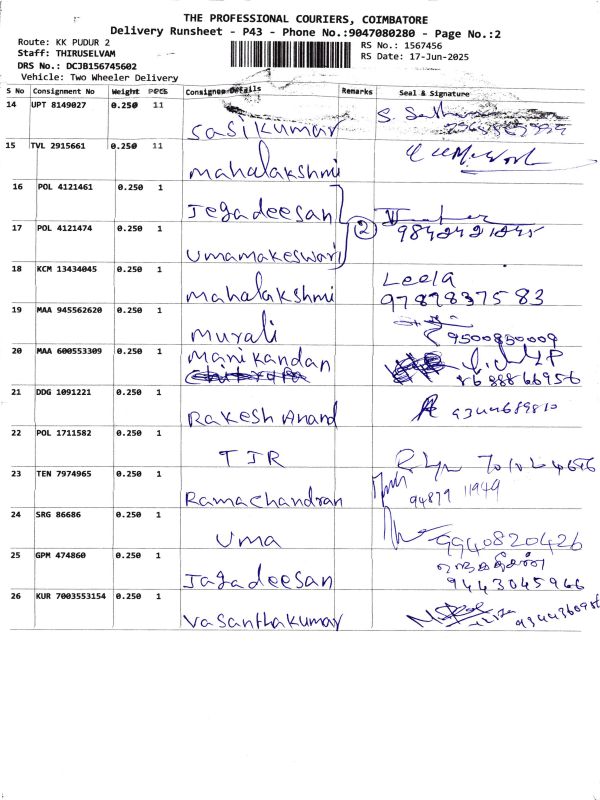 THE PROFESSIONAL COURIERS, COIMBATORE
Delivery Runsheet - P43 - Phone No.:9047080280 - Page No.:2
Route: KK PUDUR 2
RS No.: 1567456
Staff: THIRUSELVAM
RS Date: 17-Jun-2025
DRS No.: DCJB156745602
Vehicle: Two Wheeler Delivery
S No Consignment No Weight PCS Consignee Details Remarks Seal & Signature
14 UPT 8149027 0.250 11
Sasikumar
15 TVL 2915661 0.250 11
Mahalakshmi
16 POL 4121461 0.250 1
Jegadeesan
17 POL 4121474 0.250 1 2
Umamakeswari
18 KCM 13434045 0.250 1 Leela
Mahalakshmi 97879837583
19 MAA 945562620 0.250 1
Murali 9500850009
20 MAA 600553309 0.250 1 Manikandan
21 DDG 1091221 0.250 1
Rakesh Anand
22 POL 1711582 0.250 1
TJR
23 TEN 7974965 0.250 1
Ramachandran 94879 11949
24 SRG 86686 0.250 1
Uma 9940820426
25 GPM 474860 0.250 1
Jagadeesan 9443045966
26 KUR 7003553154 0.250 1
Vasanthakumar